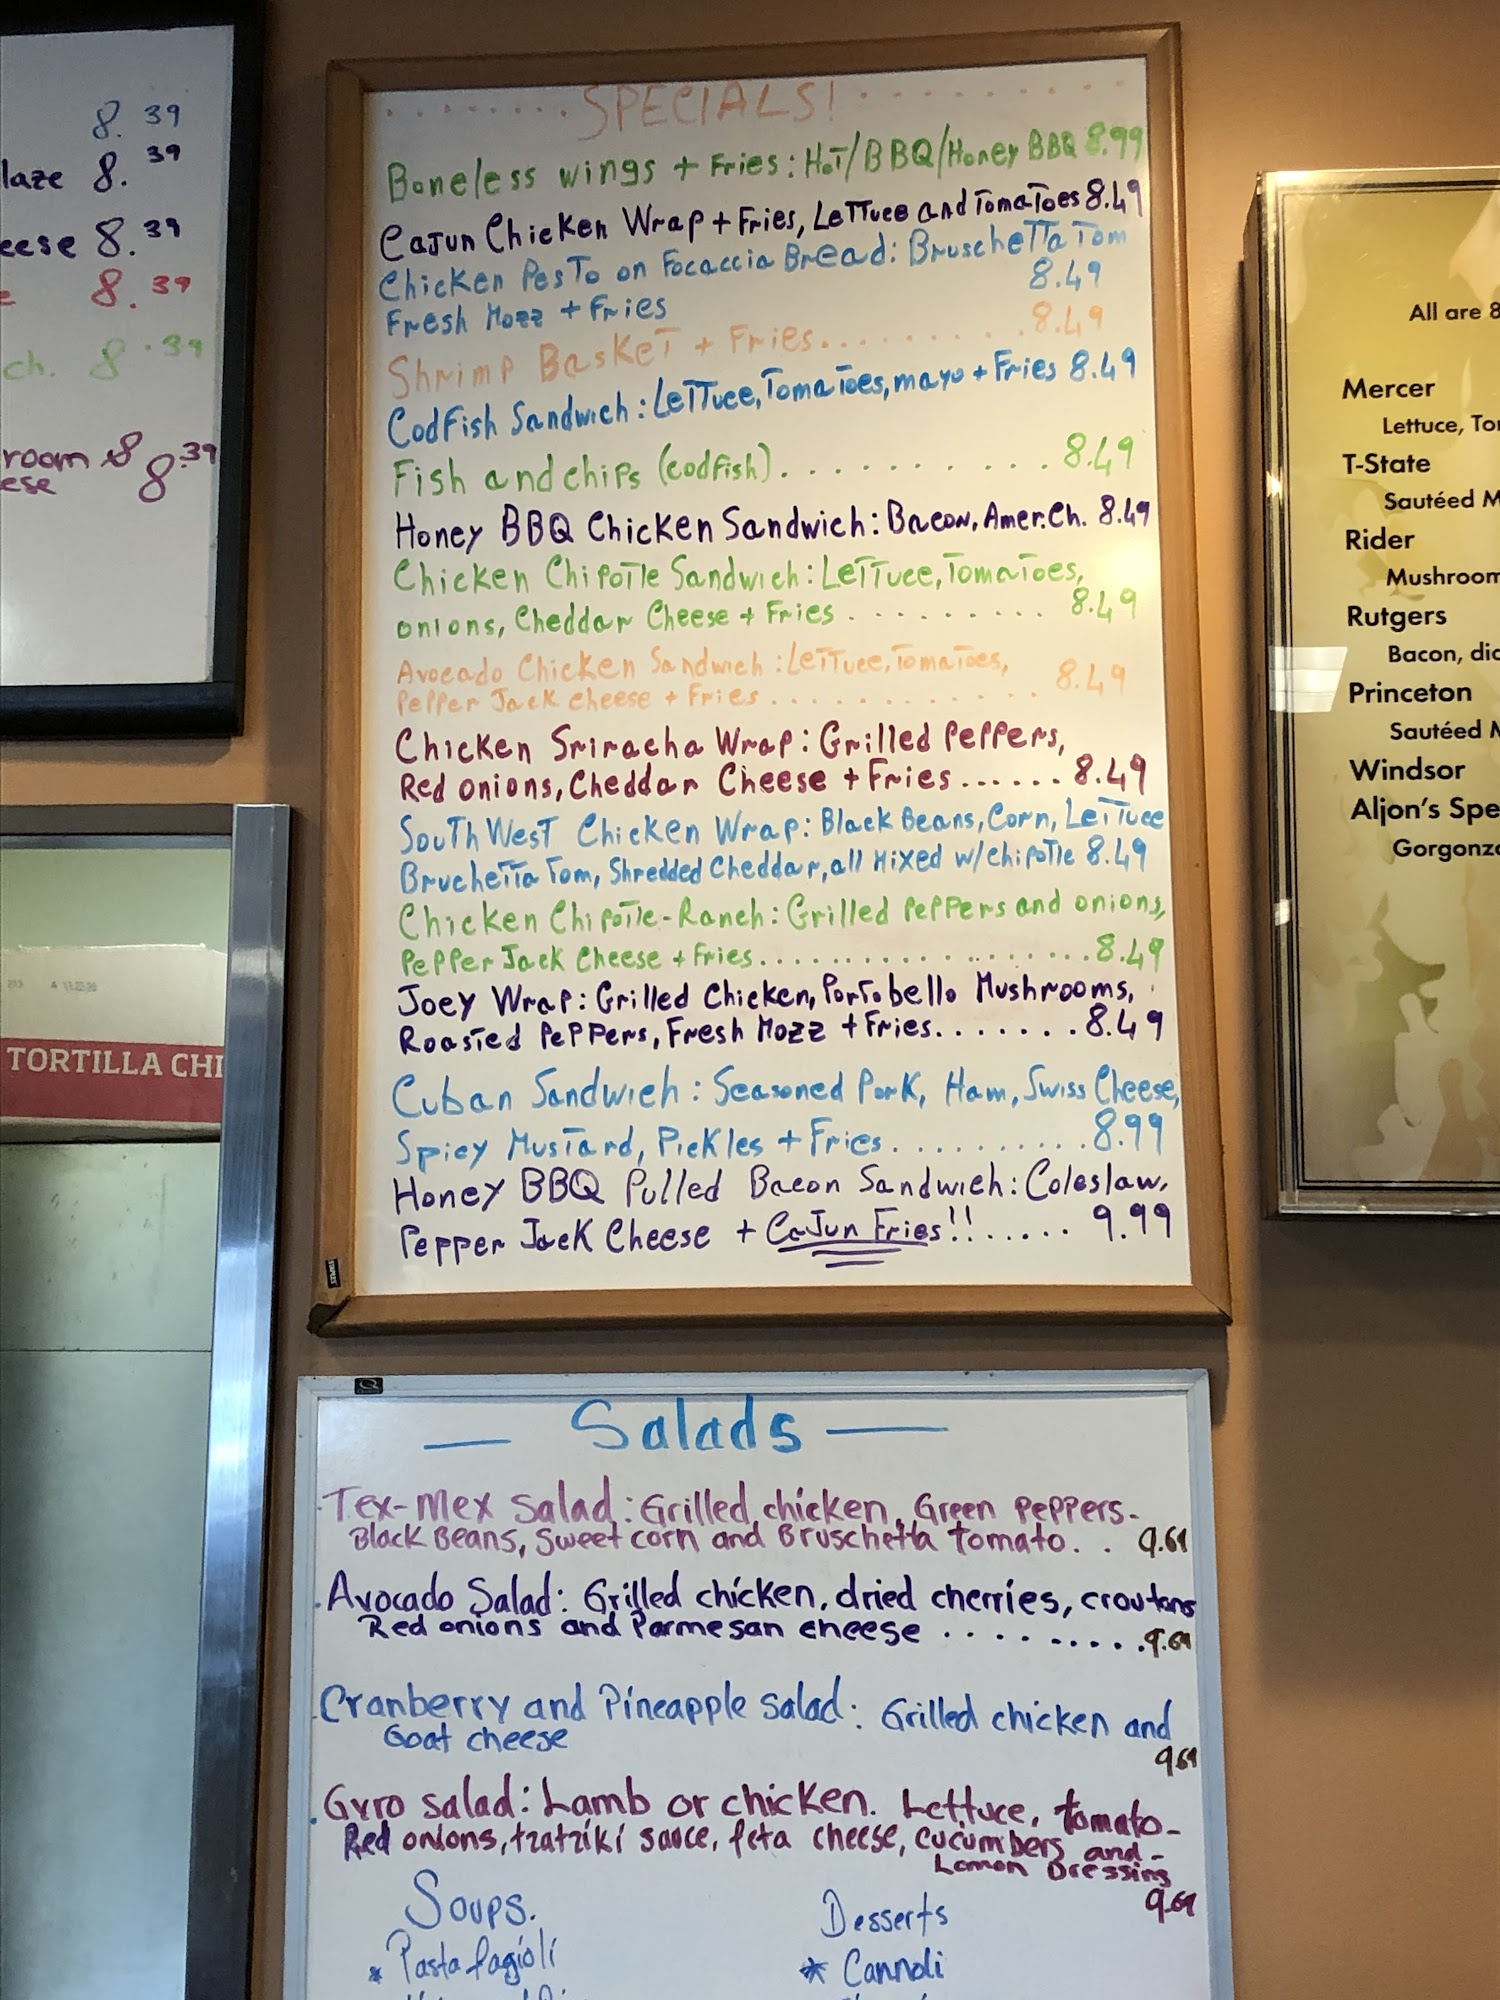 8.39
laze 8.39
eese 8.39
e 8.39
ch. 8.39
room 8 8.39
ese
TORTILLA CHI
SPECIALS!
Boneless wings + Fries: HoT/BBQ/Honey BBQ 8.99
Cajun Chicken Wrap + Fries, LeTTuce and TomaToes 8.49
Chicken PesTo on Focaccia Bread: BruscheTTa Tom
Fresh Mozz + Fries 8.49
Shrimp BaskeT + Fries......... 8.49
CodFish Sandwich: LeTTuce, TomaToes, mayo + Fries 8.49
Fish and chips (codfish)........... 8.49
Honey BBQ Chicken Sandwich: Bacon, Amer.Ch. 8.49
Chicken ChipoTle Sandwich: LeTTuce, TomaToes,
onions, Cheddar Cheese + Fries ......... 8.49
Avocado Chicken Sandwich: LeTTuce, TomaToes,
Pepper Jack cheese + Fries ........... 8.49
Chicken Sriracha Wrap: Grilled Peppers,
Red onions, Cheddar Cheese + Fries ...... 8.49
SouThWesT Chicken Wrap: Black Beans, Corn, LeTTuce
BrucheTTa Tom, Shredded Cheddar, all Mixed w/chipoTle 8.49
Chicken ChipoTle-Ranch: Grilled Peppers and onions,
Pepper Jack Cheese + Fries.................. 8.49
Joey Wrap: Grilled Chicken, PorTobello Mushrooms,
RoasTed Peppers, Fresh Mozz + Fries....... 8.49
Cuban Sandwich: Seasoned Pork, Ham, Swiss Cheese,
Spicy MusTard, Pickles + Fries.......... 8.99
Honey BBQ Pulled Bacon Sandwich: Coleslaw,
Pepper Jack Cheese + Cajun Fries!!...... 9.99
STAPLES
Salads
Tex-Mex Salad: Grilled chicken, Green Peppers-
Black Beans, Sweet corn and Bruschetta tomato. . 9.69
Avocado Salad: Grilled chicken, dried cherries, croutons
Red onions and Parmesan cheese .......... 9.69
Cranberry and Pineapple salad: Grilled chicken and
Goat cheese 9.69
Gyro salad: Lamb or chicken. Lettuce, tomato-
Red onions, tzatziki sauce, feta cheese, cucumbers and-
Lemon Dressing
9.69
Soups. Desserts
* Pasta fagioli * Cannoli
All are 8
Mercer
Lettuce, To
T-State
Sautéed M
Rider
Mushroom
Rutgers
Bacon, dic
Princeton
Sautéed M
Windsor
Aljon's Spe
Gorgonzo